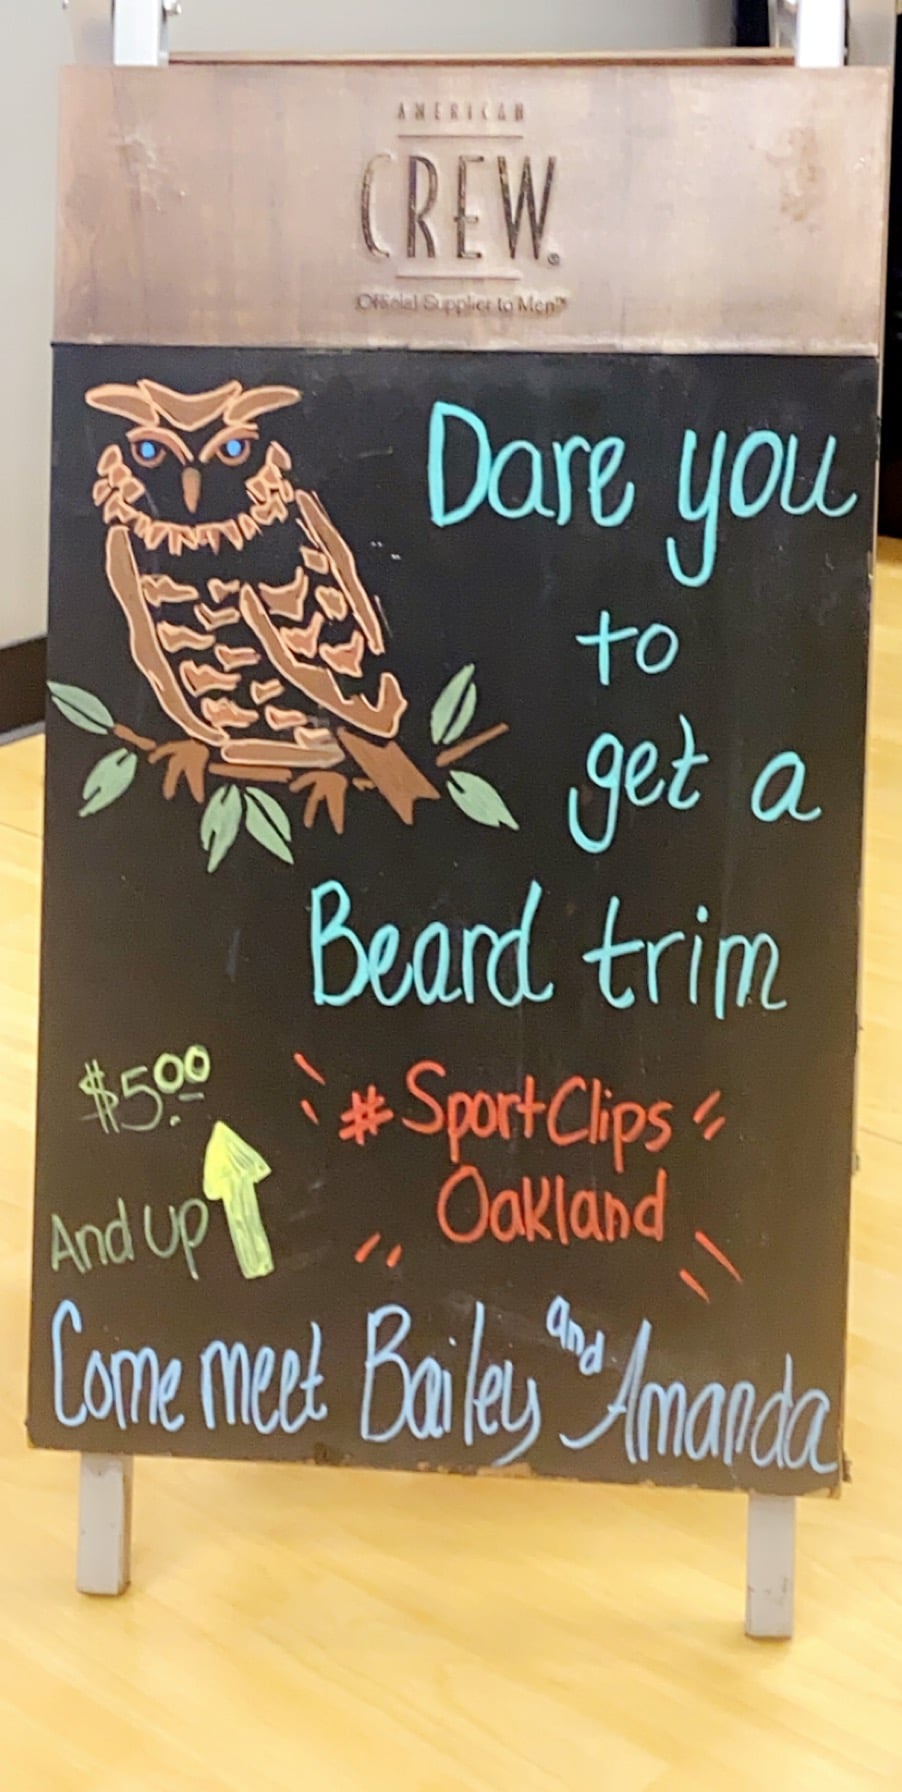 AMERICAN
CREW®
Official Supplier to Men™
Dare you
to
get a
Beard trim
$5.00
And up
#SportClips
Oakland
Come meet Bailey and Amanda